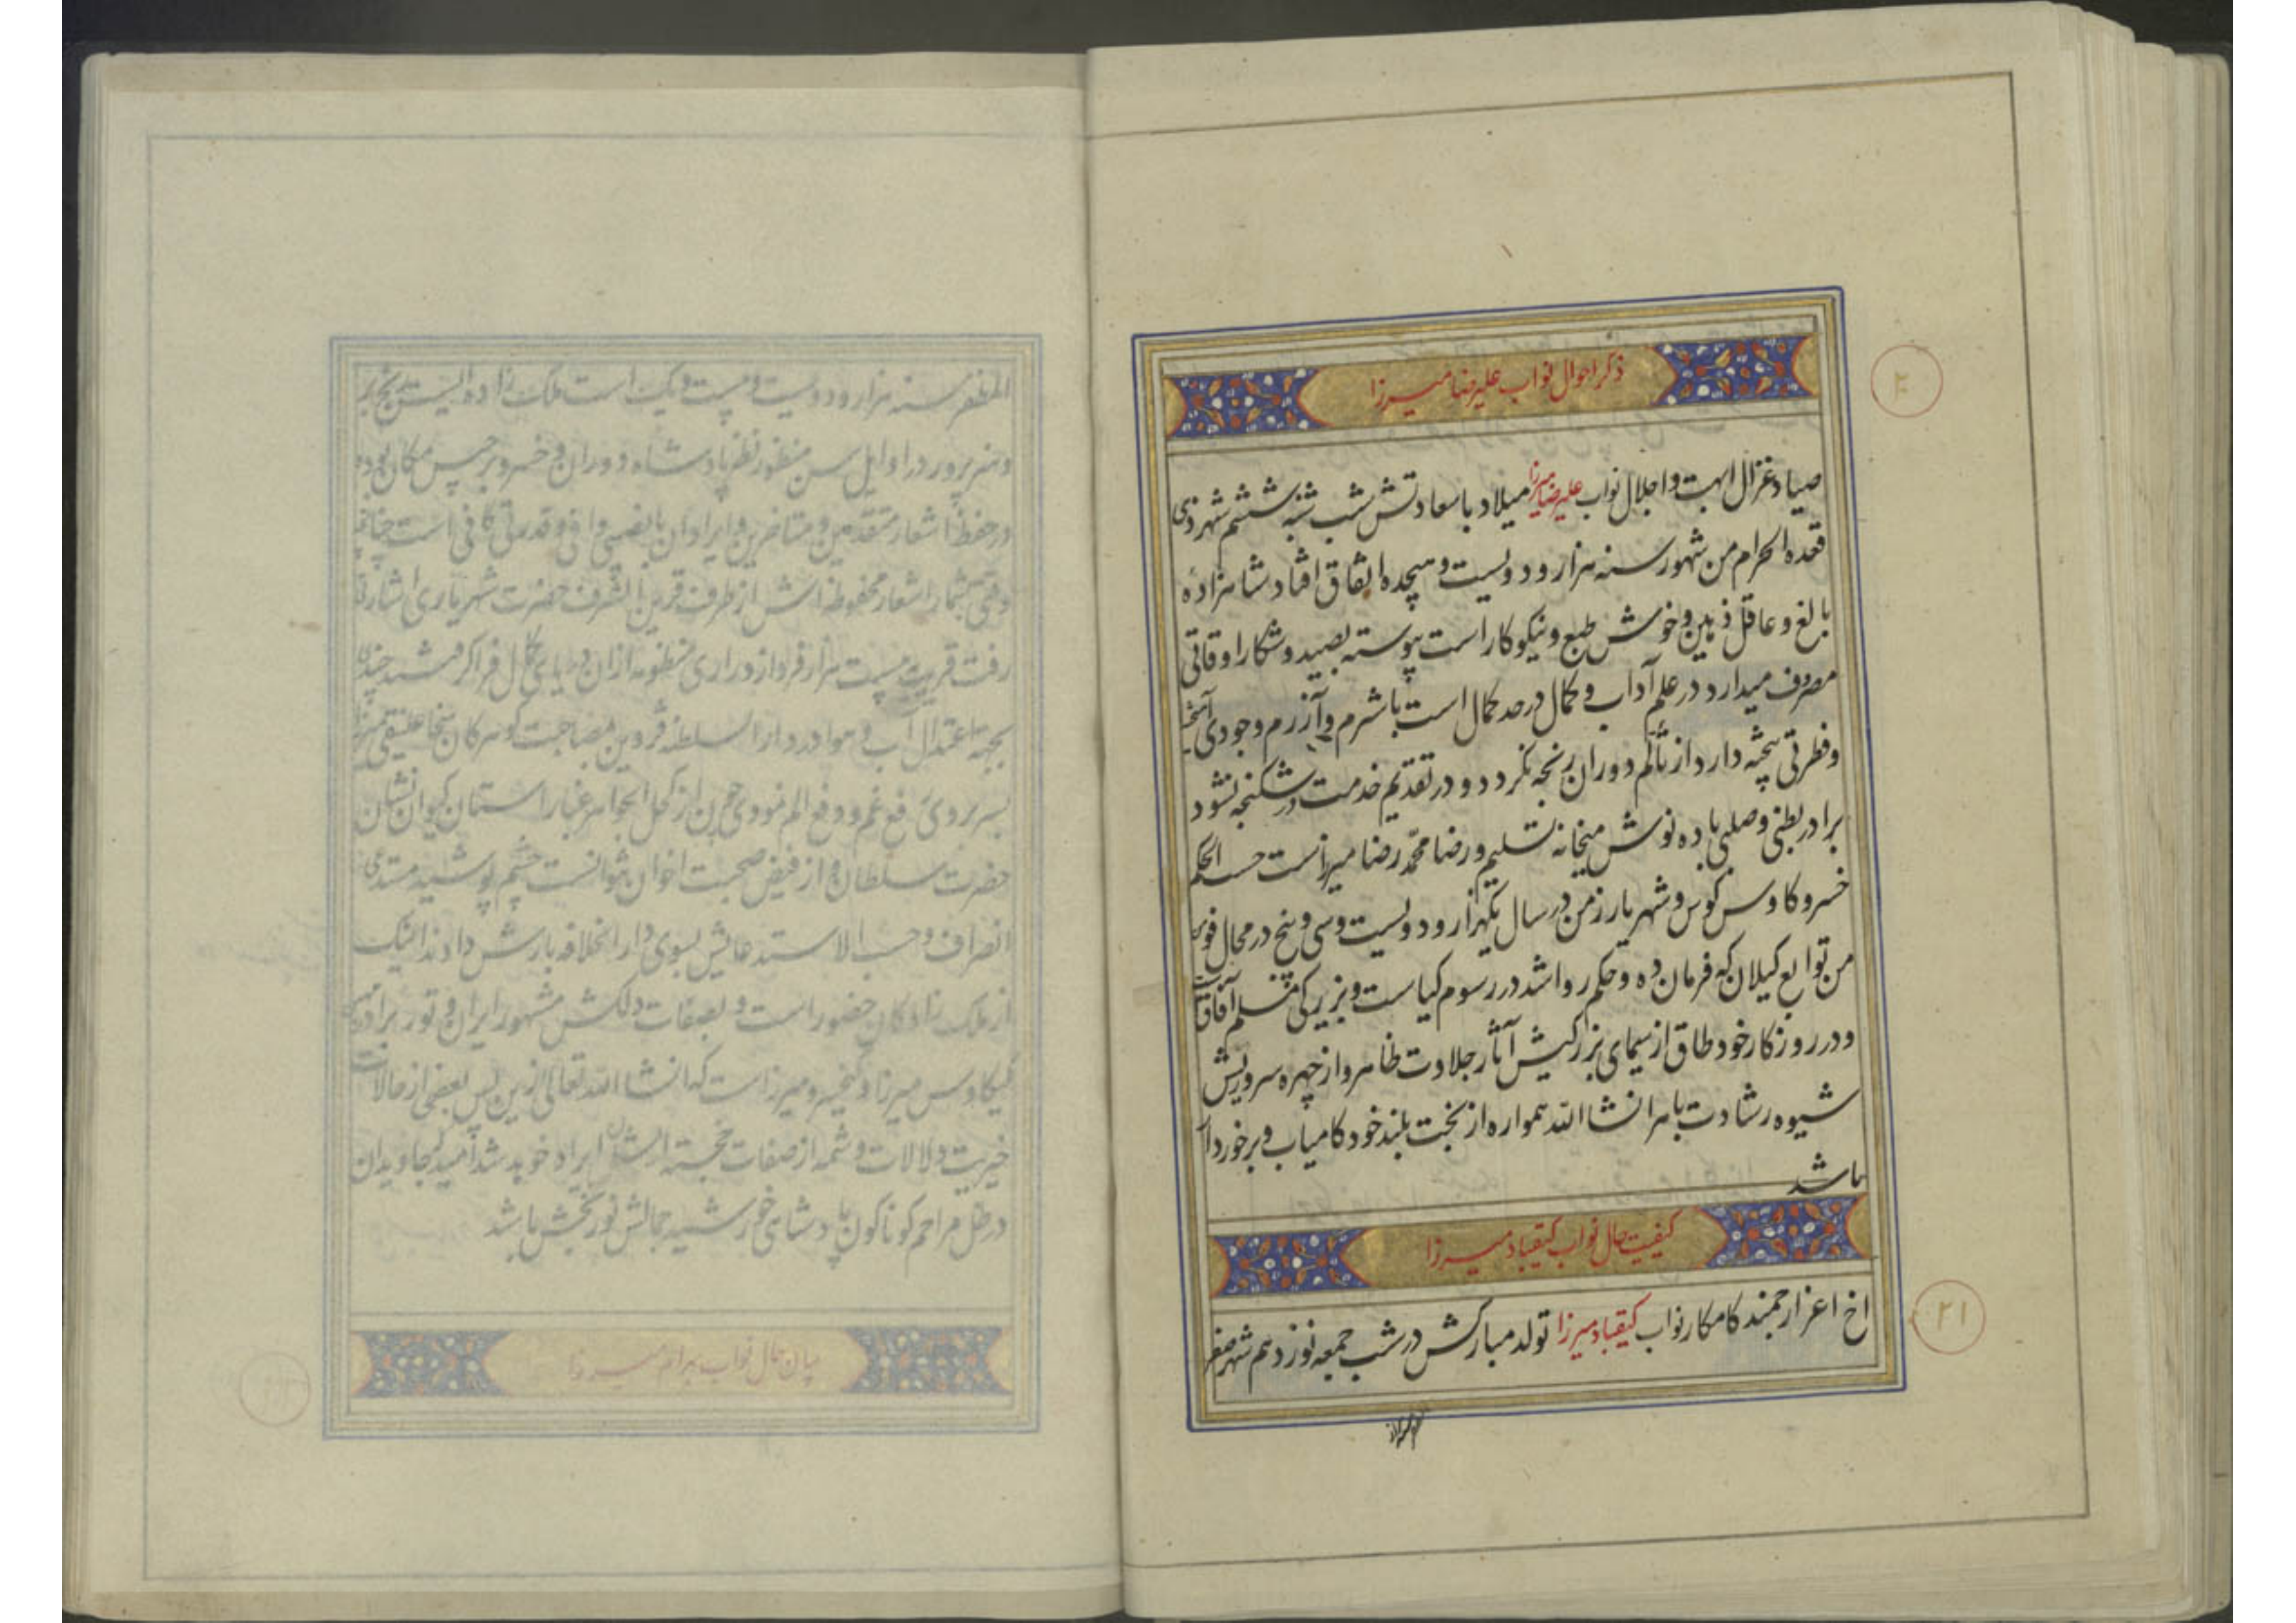 ذکر احوال نواب علیرضا میرزا
۲۰
صیاد غزال ابهت و اجلال نواب علیرضا میرزا میلاد باسعادتش شب شنبه ششم شهر ذی
قعده الحرام من شهور سنه هزار و دویست و هیجده اتفاق افتاد شاهزاده
بالغ و عاقل ذهین و خوش طبع و نیکوکار است پیوسته بصید و شکار اوقاتی
مصروف میدارد در علم آداب و کمال در حد کمال است با شرم و آزرم وجودی آمیخته
و فطرتی پخته دارد از تألم دوران رنجه نکردد و در تقدیم خدمت در شکنجه نشود
برادر بطنی و صلبی باده نوش میخانه تسلیم و رضا محمد رضا میرزاست حسب الحکم
خسرو کاوس کوس و شهریار زمن در سال یکهزار و دویست و سی و پنج در محال فومن
من توابع کیلان که فرمان ده و حکم روا شد در رسوم کیاست و بزرکی مسلم آفاق
و در روزکار خود طاق از سیمای بزرکیش آثار جلادت ظاهر و از چهره سروریش
شیوه رشادت باهر انشاالله همواره از بخت بلند خود کامیاب و برخوردار
باشد
کیفیت حال نواب کیقباد میرزا
۲۱
اخ اعز ارجمند کامکار نواب کیقباد میرزا تولد مبارکش در شب جمعه نوزدهم شهر صفر
المظفر سنه هزار و دویست و بیست و یک است ملک زاده ایست
و هنرپرور در اوایل سن منظور نظر پادشاه دوران و خسرو برجیس مکان بوده
در حفظ اشعار متقدمین و متاخرین و ایراد آن بانصیبی وافی و قدرتی کافی است چنانچه
وقتی بشمار اشعار محفوظه اش از طرف قرین الشرف حضرت شهریاری اشارت
رفت قریب بیست هزار فرد از دراری منظومه ازان
بجهة اعتدال آب و هوا در دارالسلطنه قزوین
بسر بردی رفع غم و دفع الم نمودی چون از کحل الجواهر غبار آستان کیوان نشان
حضرت سلطان و از فیض صحبت اخوان نتوانست چشم پوشید مستدعی
انصراف و حسب الاستدعایش بسوی دارالخلافه بارش دادند اینک
از ملک زادکان حضور است و بصفات دلکش مشهور ایران و تور برادر مهین
کیکاوس میرزا و کیخسرو میرزاست که انشاالله تعالی ازین پس بعضی از حالات
خیریت دلالات و شمه از صفات خجسته ایشان ایراد خوهد شد امید که جاویدان
در ظل مراحم کوناکون پادشاهی خورشید جمالش نوربخش باشد
بیان حال نواب بهرام میرزا
۲۲